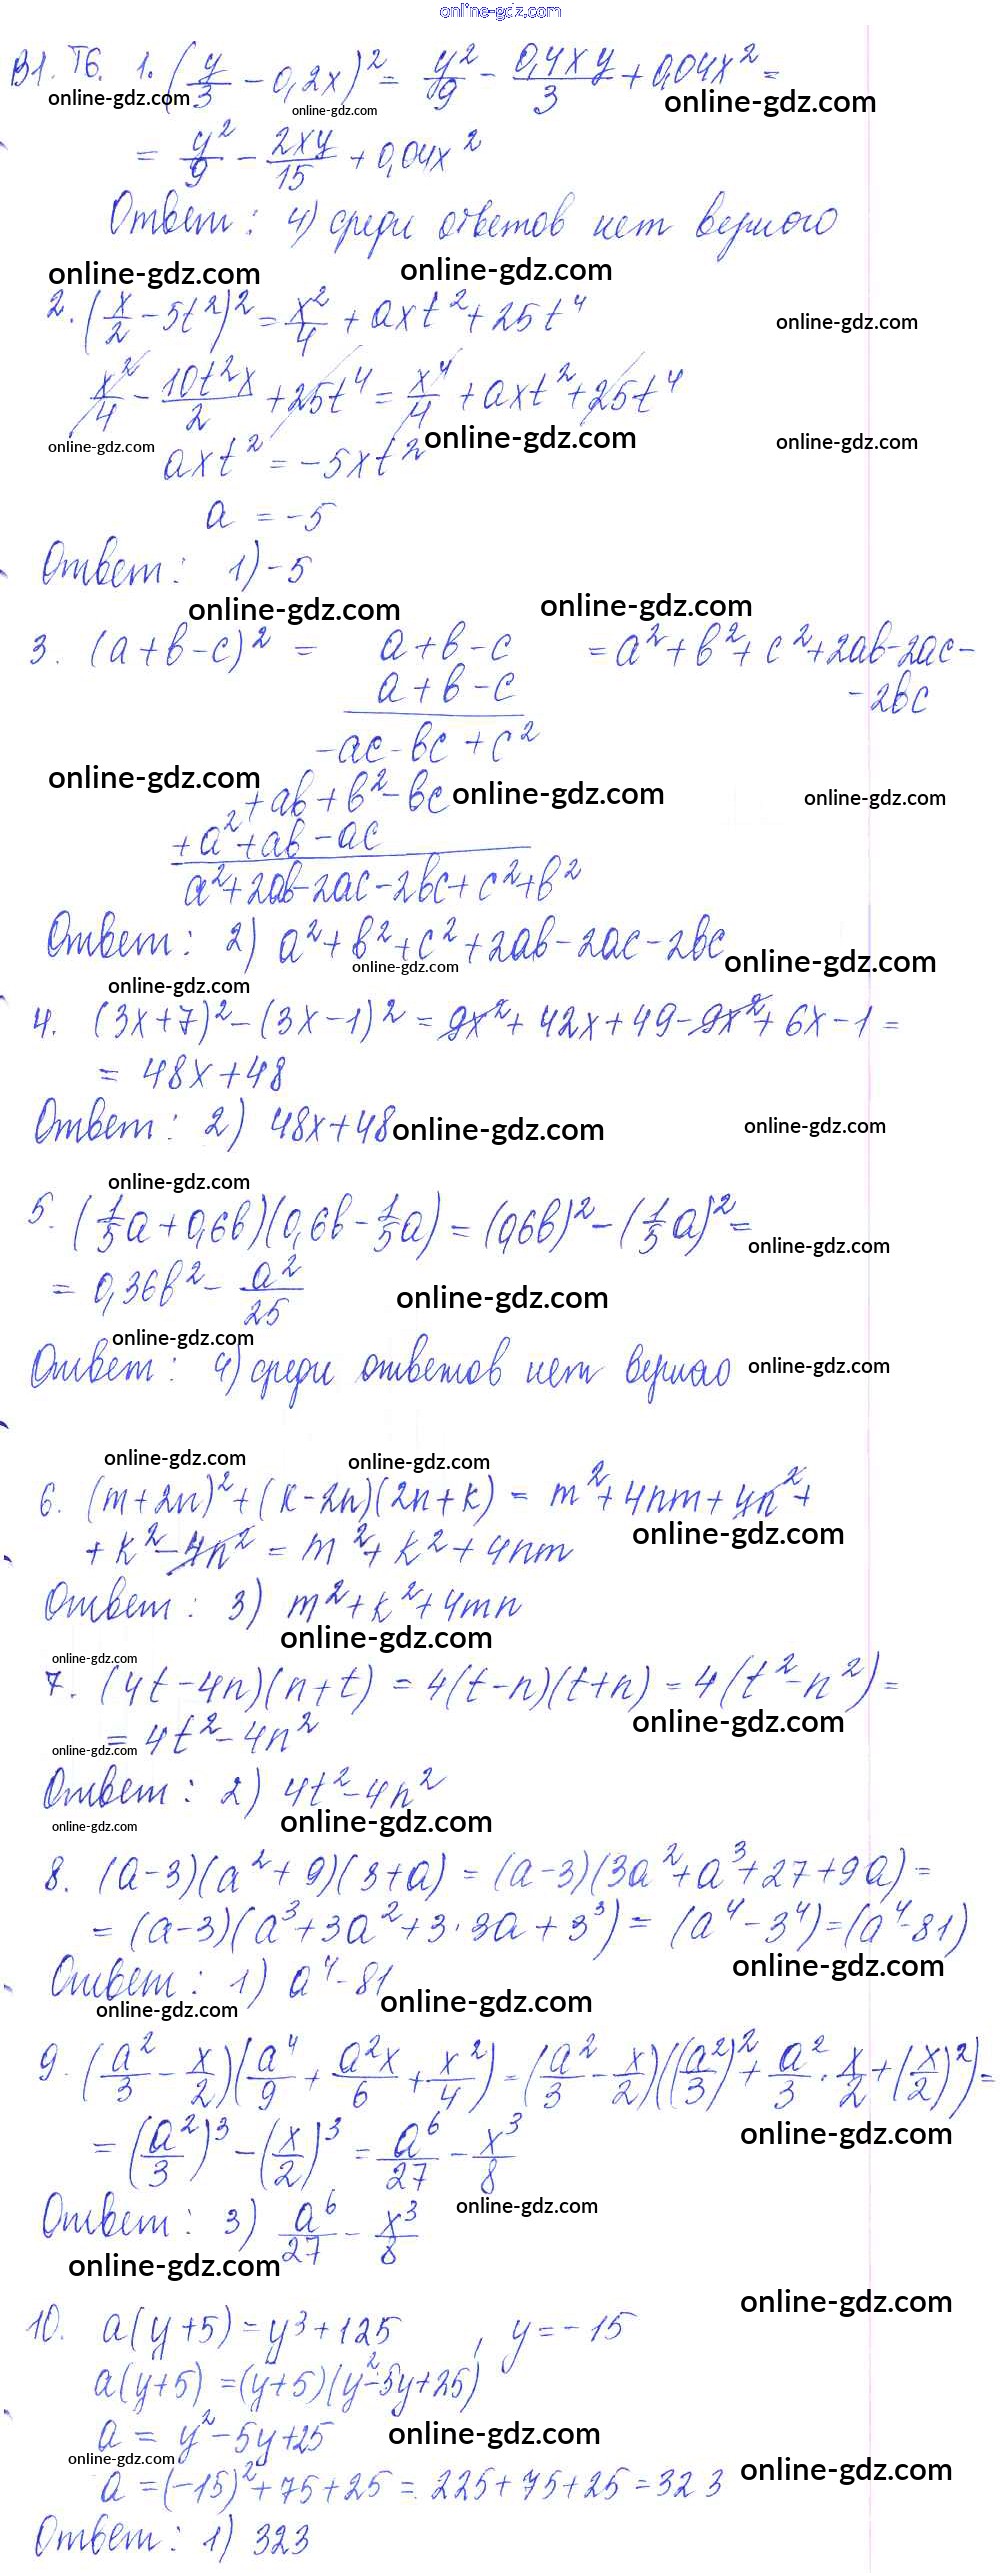 online-gdz.com
В1. Т6. 1. (y/3 - 0,2x)² = y²/9 - 0,4xy/3 + 0,04x² =
online-gdz.com online-gdz.com online-gdz.com
= y²/9 - 2xy/15 + 0,04x²
Ответ: 4) среди ответов нет верного
online-gdz.com online-gdz.com
2. (x/2 - 5t²)² = x²/4 + axt² + 25t⁴
online-gdz.com
x²/4 - 10t²x/2 + 25t⁴ = x⁴/4 + axt² + 25t⁴
online-gdz.com online-gdz.com online-gdz.com
axt² = -5xt²
a = -5
Ответ: 1) -5
online-gdz.com online-gdz.com
3. (a+b-c)² = a+b-c = a²+b²+c²+2ab-2ac-
a+b-c -2bc
-ac-bc+c²
online-gdz.com +ab+b²-bc online-gdz.com online-gdz.com
+a²+ab-ac
a²+2ab-2ac-2bc+c²+b²
Ответ: 2) a²+b²+c²+2ab-2ac-2bc
online-gdz.com online-gdz.com
online-gdz.com
4. (3x+7)²-(3x-1)² = 9x²+42x+49-9x²+6x-1 =
= 48x+48
Ответ: 2) 48x+48
online-gdz.com online-gdz.com
online-gdz.com
5. (1/5a+0,6b)(0,6b-1/5a) = (0,6b)²-(1/5a)² =
online-gdz.com
= 0,36b² - a²/25
online-gdz.com
online-gdz.com
Ответ: 4) среди ответов нет верно
online-gdz.com
online-gdz.com online-gdz.com
6. (m+2n)²+(k-2n)(2n+k) = m²+4nm+4n²+
online-gdz.com
+k²-4n² = m²+k²+4nm
Ответ: 3) m²+k²+4mn
online-gdz.com
online-gdz.com
7. (4t-4n)(n+t) = 4(t-n)(t+n) = 4(t²-n²) =
online-gdz.com
= 4t²-4n²
online-gdz.com
Ответ: 2) 4t²-4n²
online-gdz.com online-gdz.com
8. (a-3)(a²+9)(3+a) = (a-3)(3a²+a³+27+9a) =
= (a-3)(a³+3a²+3·3a+3³) = (a⁴-3⁴) = (a⁴-81)
online-gdz.com
Ответ: 1) a⁴-81
online-gdz.com online-gdz.com
9. (a²/3 - x/2)(a⁴/9 + a²x/6 + x²/4) = (a²/3 - x/2)((a²/3)² + a²/3 · x/2 + (x/2)²) =
online-gdz.com
= (a²/3)³ - (x/2)³ = a⁶/27 - x³/8
Ответ: 3) a⁶/27 - x³/8
online-gdz.com
online-gdz.com
online-gdz.com
10. a(y+5) = y³+125, y = -15
a(y+5) = (y+5)(y²-5y+25)
a = y²-5y+25
online-gdz.com online-gdz.com
online-gdz.com
a = (-15)²+75+25 = 225+75+25 = 323
Ответ: 1) 323